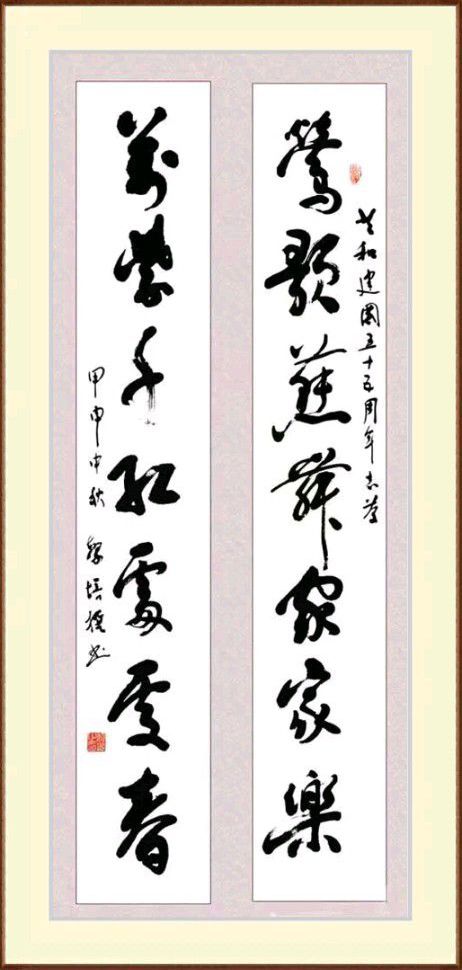 共和建國五十五周年志慶
鶯歌燕舞家家樂
萬紫千紅處處春
甲申中秋 培書